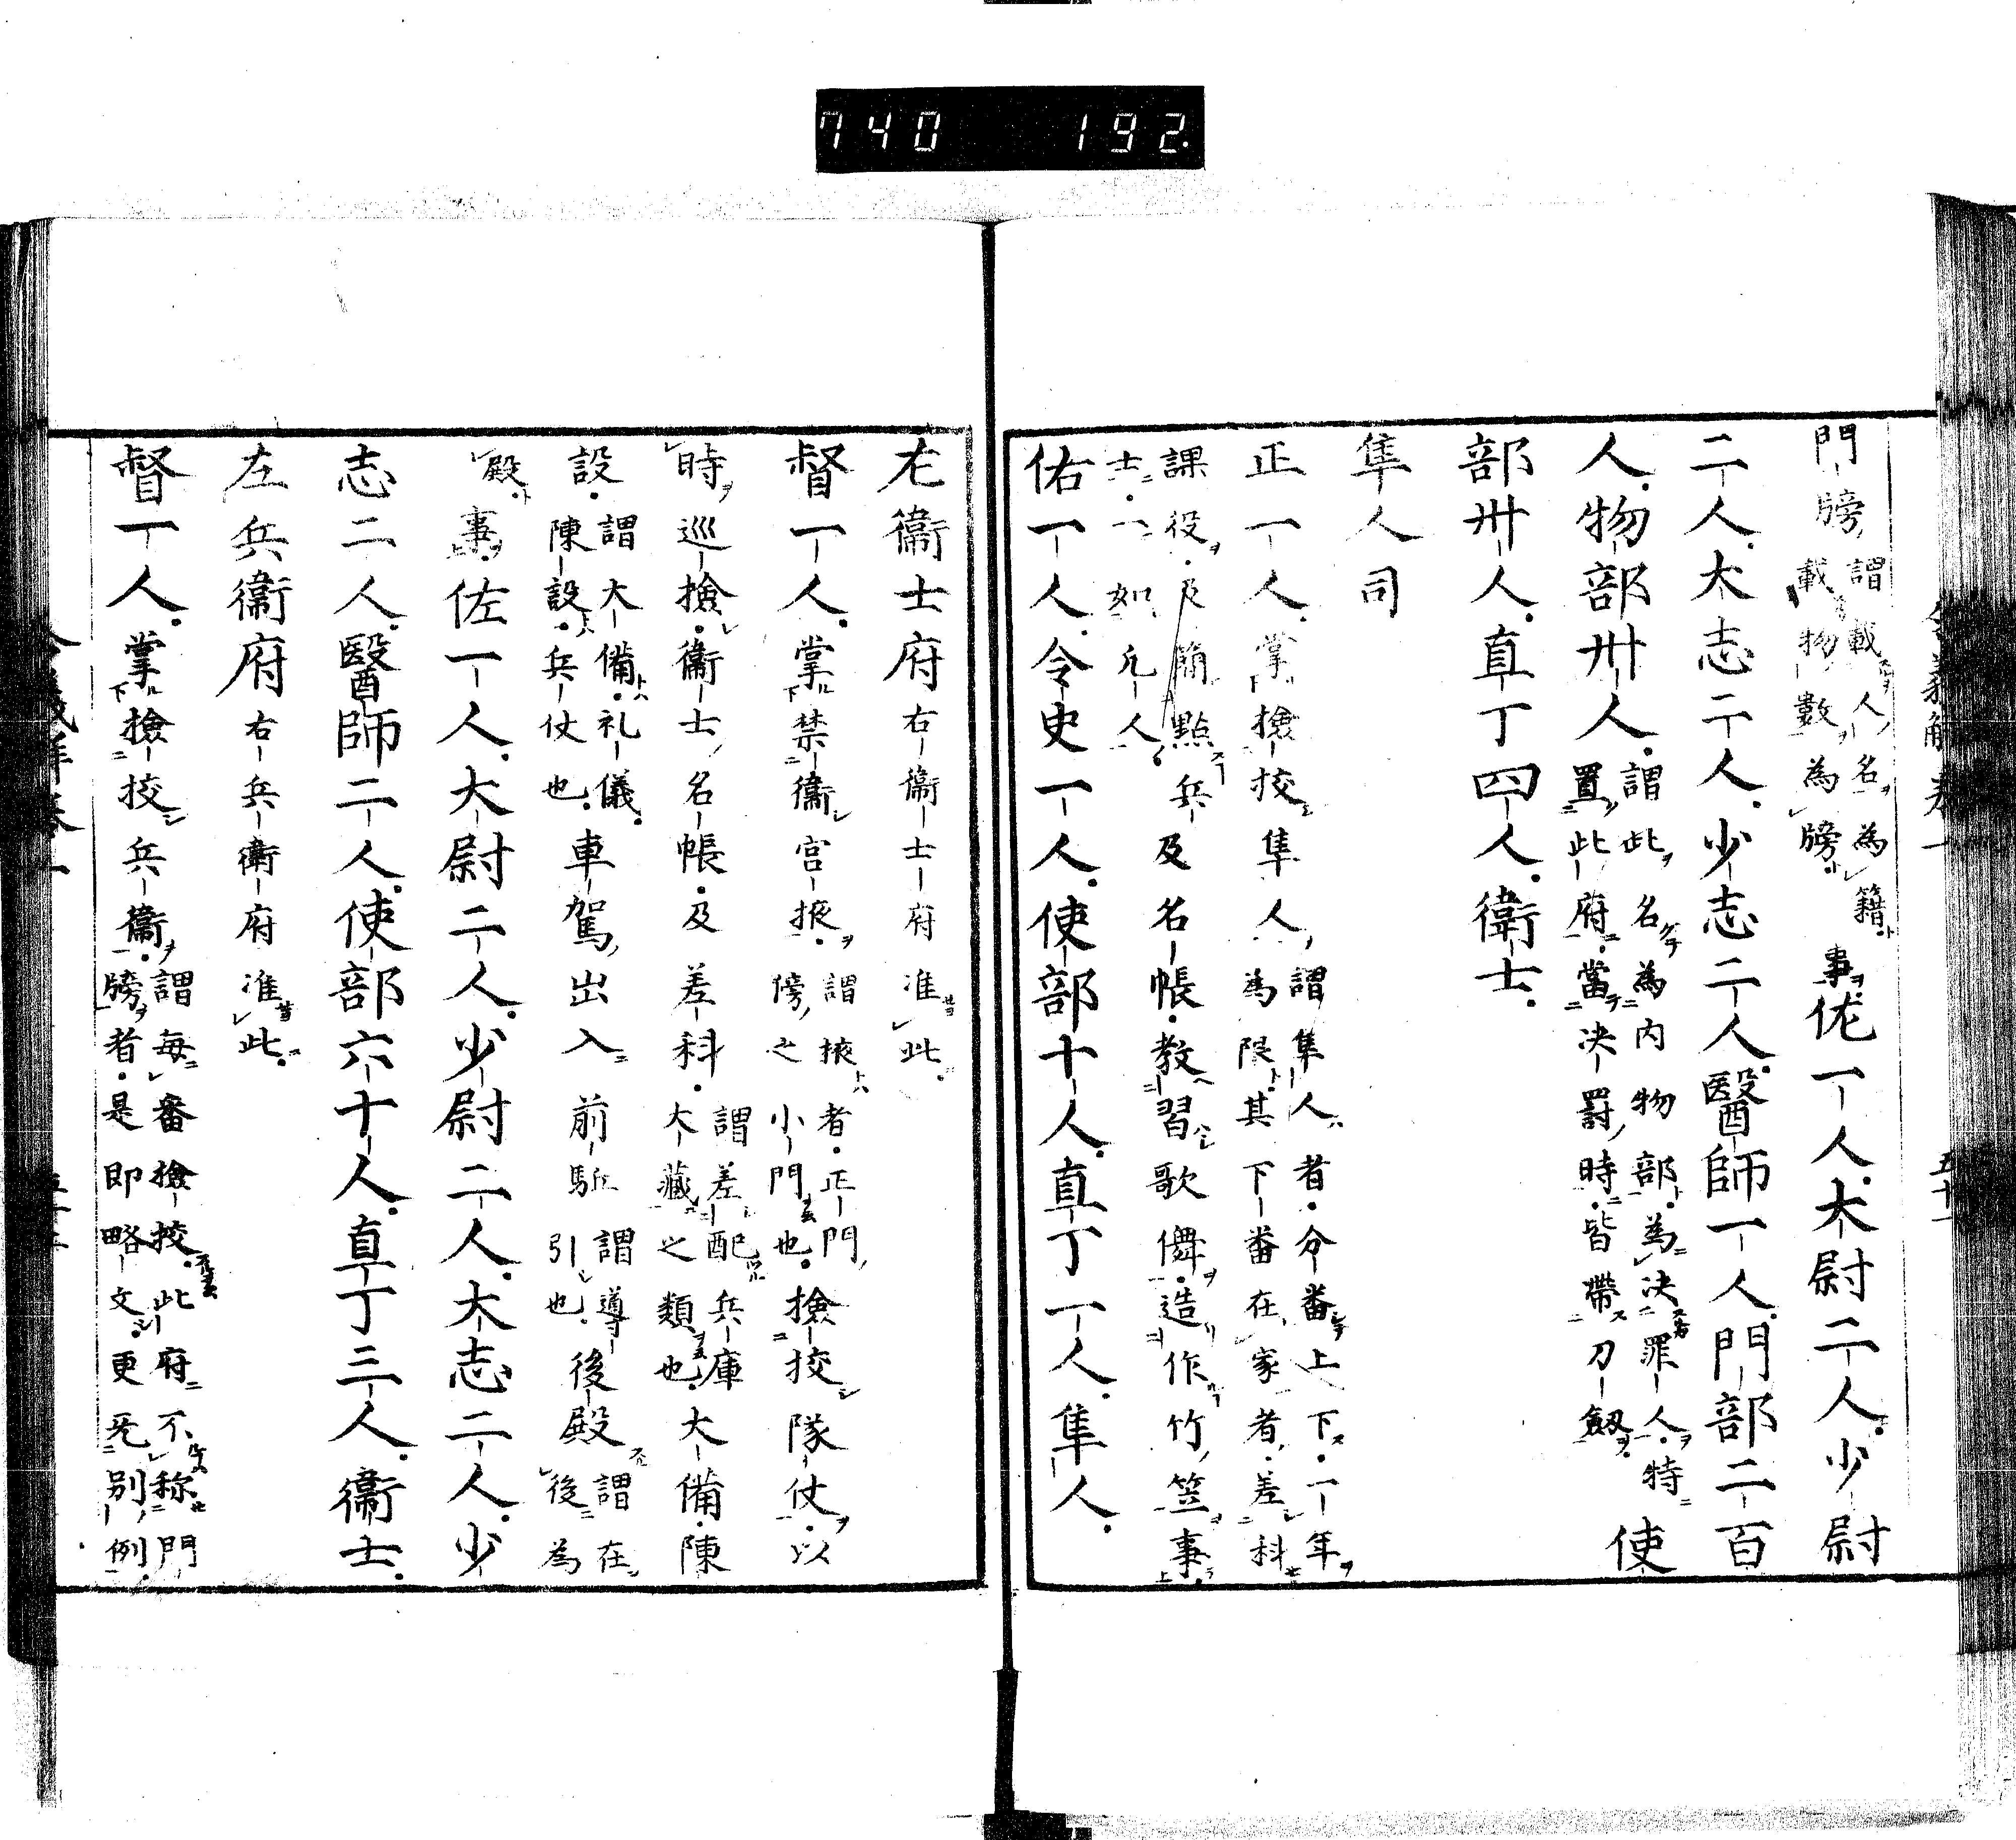 740 192.
門牓謂載人名為籍載物數為牓事佐一人大尉二人少尉
二人大志二人少志二人醫師一人門部二百
人物部卅人謂此名為內物部為決罪人特置此府當決罰時皆帶刀劔使
部卅人直丁四人衛士
隼人司
正一人掌撿挍隼人謂隼人者分番上下一年為限其下番在家者差科
課役及簡點兵士一如凡人及名帳教習歌儛造作竹笠事
佑一人令史一人使部十人直丁一人隼人
左衛士府右衛士府准此
督一人掌禁衛宮掖謂掖者正門傍之小門也撿挍隊仗以
時巡撿衛士名帳及差科謂差配兵庫大藏之類也大備陳
設謂大備礼儀陳設兵仗也車駕出入前駈謂導引也後殿謂在後為
殿事佐一人大尉二人少尉二人大志二人少
志二人醫師二人使部六十人直丁三人衛士
左兵衛府右兵衛府准此
督一人掌撿挍兵衛謂每番撿挍此府不称門牓者是即略文更无別例